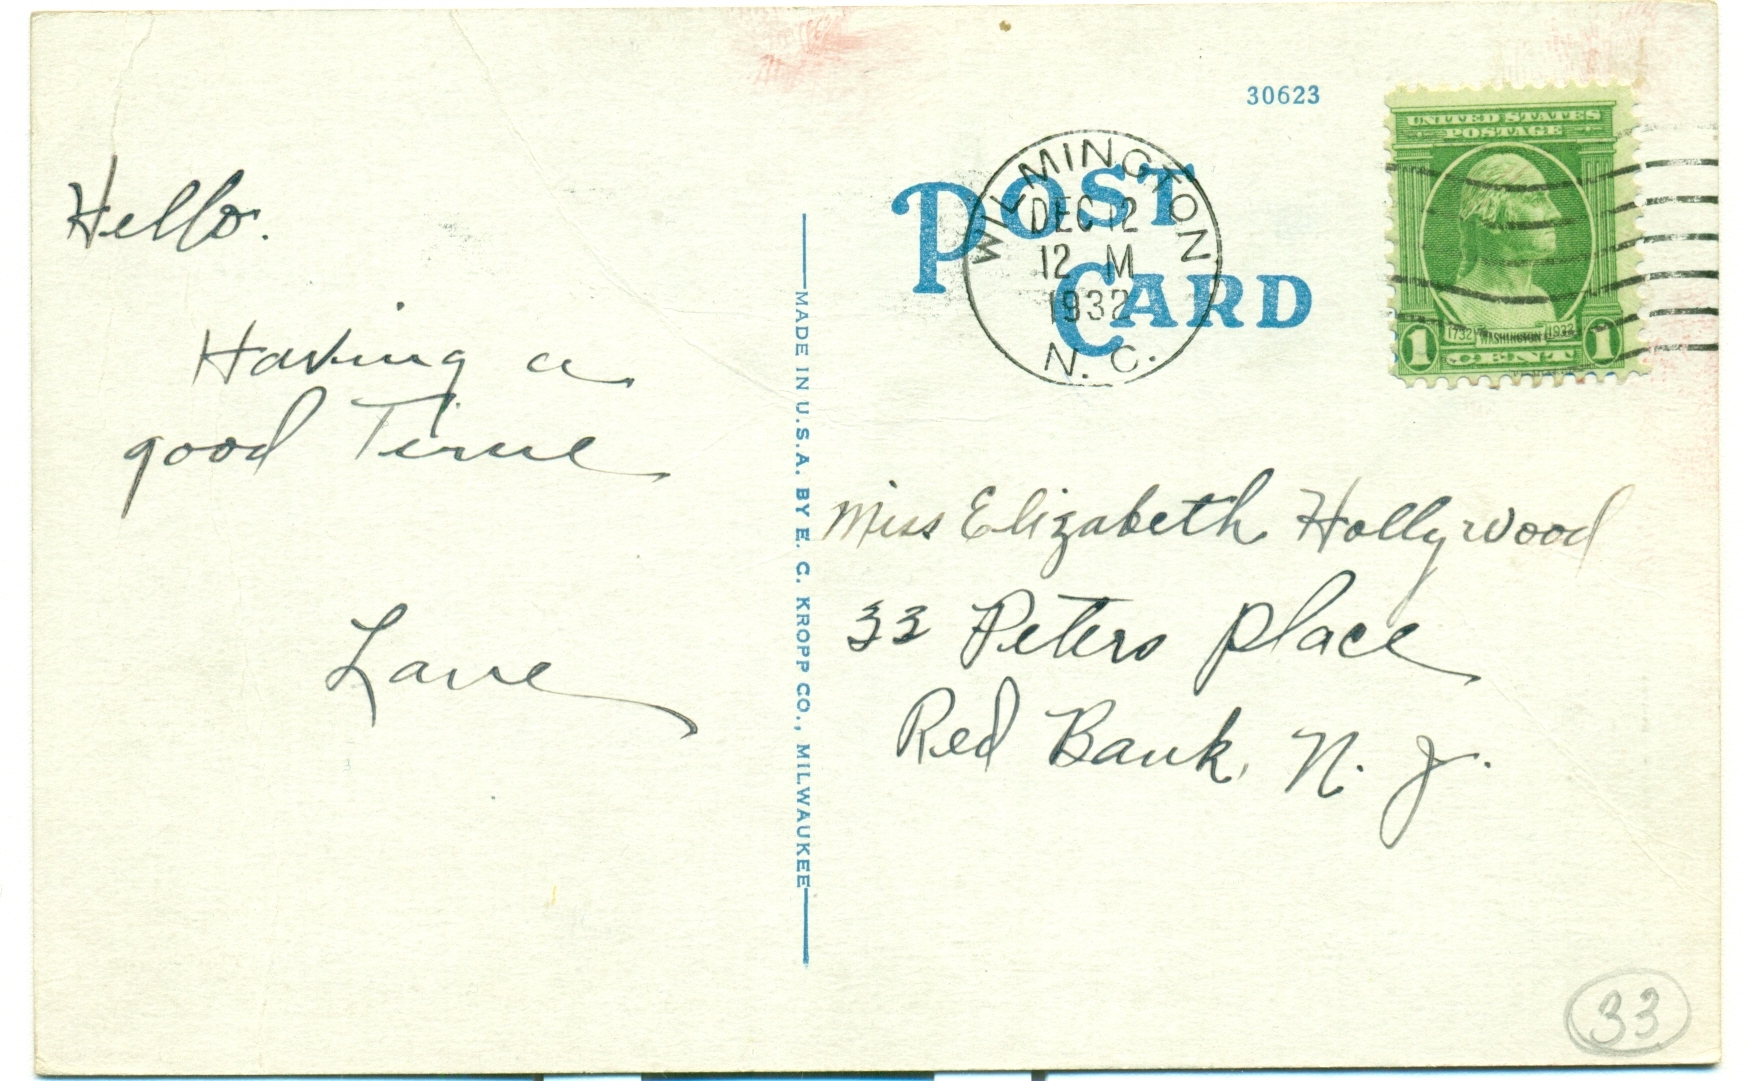 Hello.
Having a
good Time
Lane
MADE IN U.S.A. BY E. C. KROPP CO., MILWAUKEE
30623
POST
CARD
WILMINGTON
DEC 12
12 M
1932
N. C.
UNITED STATES
POSTAGE
1732 WASHINGTON 1932
1 CENT 1
Miss Elizabeth Hollywood
33 Peters place
Red Bank, N. J.
33